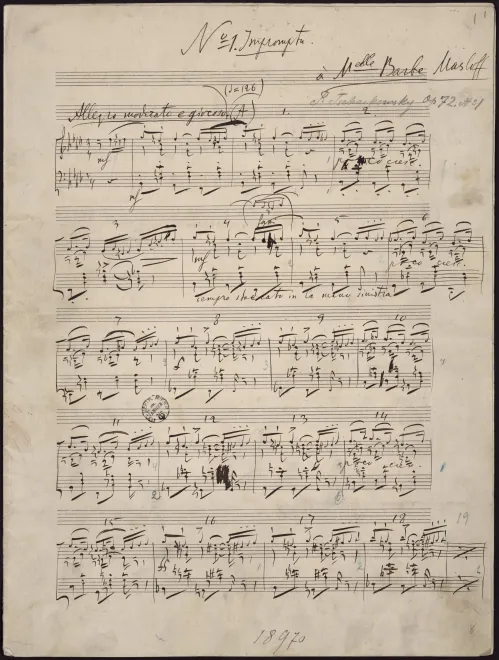 No 1. Impromptu.
à Melle Barbe Masloff
(♩=126)
P. Tschaikowsky Op 72, No 1
Allegro moderato e giocoso
1. 2
mf
poco cresc.
mf
3 4 5 6
mf
poco cresc.
sempre staccato in la mano sinistra
7 8 9 10
11 12 13 14
poco cresc.
15 16 17 18 19
ff